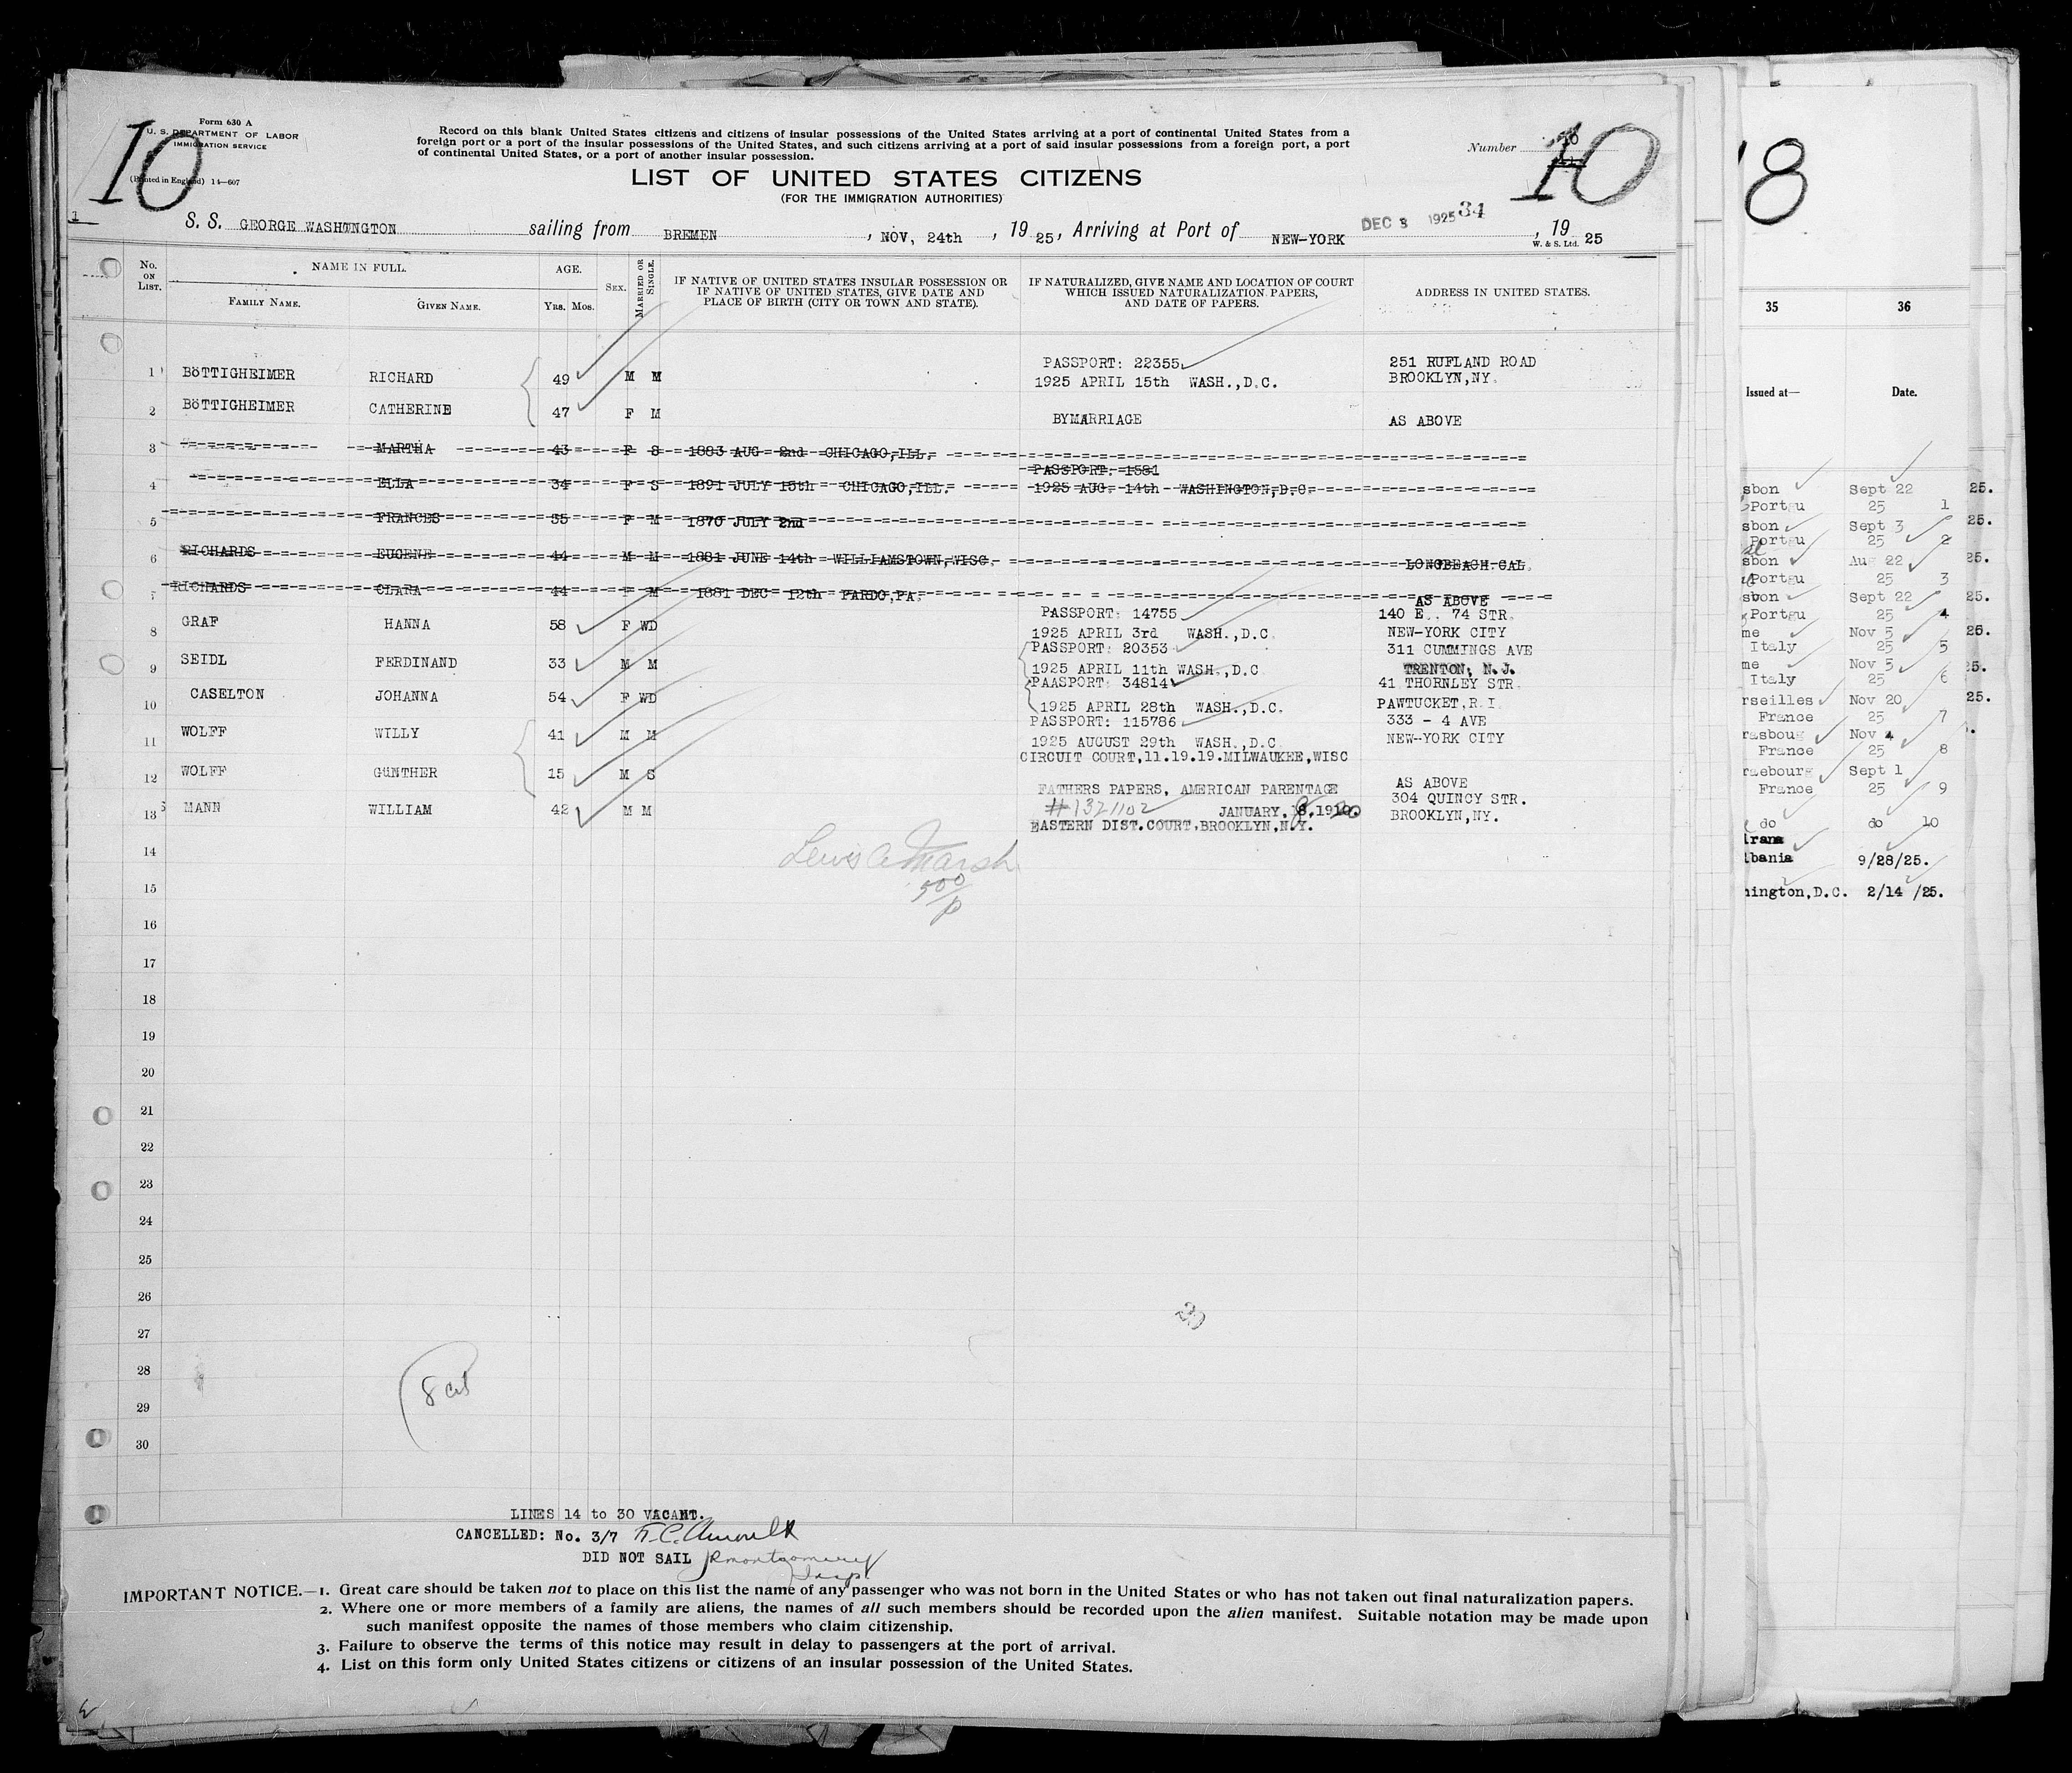 10
Form 630 A
U. S. DEPARTMENT OF LABOR
IMMIGRATION SERVICE
(Printed in England) 14—607
Record on this blank United States citizens and citizens of insular possessions of the United States arriving at a port of continental United States from a
foreign port or a port of the insular possessions of the United States, and such citizens arriving at a port of said insular possessions from a foreign port, a port
of continental United States, or a port of another insular possession.
Number 10
LIST OF UNITED STATES CITIZENS
(FOR THE IMMIGRATION AUTHORITIES)
1
S. S. GEORGE WASHINGTON sailing from BREMEN, NOV, 24th, 1925, Arriving at Port of NEW-YORK DEC 3 1925 34, 1925
W. & S. Ltd.
No. ON LIST. NAME IN FULL. AGE. SEX. MARRIED OR SINGLE. IF NATIVE OF UNITED STATES INSULAR POSSESSION OR IF NATIVE OF UNITED STATES, GIVE DATE AND PLACE OF BIRTH (CITY OR TOWN AND STATE). IF NATURALIZED, GIVE NAME AND LOCATION OF COURT WHICH ISSUED NATURALIZATION PAPERS, AND DATE OF PAPERS. ADDRESS IN UNITED STATES.
FAMILY NAME. GIVEN NAME. Yrs. Mos.
PASSPORT: 22355 251 RUFLAND ROAD
1 BöTTIGHEIMER RICHARD 49 M M 1925 APRIL 15th WASH.,D.C. BROOKLYN,NY.
2 BöTTIGHEIMER CATHERINE 47 F M BYMARRIAGE AS ABOVE
3 MARTHA 43 F S 1883 AUG 2nd CHICAGO,ILL.
PASSPORT: 1581
4 ELLA 34 F S 1891 JULY 15th CHICAGO,ILL. 1925 AUG. 14th WASHINGTON,D.C.
5 FRANCES 55 F M 1870 JULY 2nd
6 RICHARDS EUGENE 44 M M 1881 JUNE 14th WILLIAMSTOWN,WISC. LONGBEACH.CAL.
7 RICHARDS CLARA 44 F M 1881 DEC 12th PARDO,PA. AS ABOVE
PASSPORT: 14755 140 E.. 74 STR.
8 GRAF HANNA 58 F WD 1925 APRIL 3rd WASH.,D.C. NEW-YORK CITY
PASSPORT: 20353 311 CUMMINGS AVE
9 SEIDL FERDINAND 33 M M 1925 APRIL 11th WASH.,D.C TRENTON, N.J.
PAASPORT: 34814 41 THORNLEY STR.
10 CASELTON JOHANNA 54 F WD 1925 APRIL 28th WASH.,D.C. PAWTUCKET,R.I.
PASSPORT: 115786 333 - 4 AVE
11 WOLFF WILLY 41 M M 1925 AUGUST 29th WASH.,D.C NEW-YORK CITY
CIRCUIT COURT,11.19.19.MILWAUKEE,WISC
12 WOLFF GüNTHER 15 M S FATHERS PAPERS, AMERICAN PARENTAGE AS ABOVE
304 QUINCY STR.
13 MANN WILLIAM 42 M M #1321102 JANUARY, 8.1920 BROOKLYN,NY.
EASTERN DIST.COURT,BROOKLYN,N.Y.
14
Lewis A Marsh
500
15
16
17
18
19
20
21
22
23
24
25
26
27
28
29
30
LINES 14 to 30 VACANT.
CANCELLED: No. 3/7
DID NOT SAIL JRMontgomery
IMPORTANT NOTICE.—1. Great care should be taken not to place on this list the name of any passenger who was not born in the United States or who has not taken out final naturalization papers.
2. Where one or more members of a family are aliens, the names of all such members should be recorded upon the alien manifest. Suitable notation may be made upon
such manifest opposite the names of those members who claim citizenship.
3. Failure to observe the terms of this notice may result in delay to passengers at the port of arrival.
4. List on this form only United States citizens or citizens of an insular possession of the United States.
8
35 36
Issued at— Date.
sbon Sept 22 25.
Portgu 25 1
sbon Sept 3 25.
Portgu 25 2
sbon Aug 22 25.
Portgu 25 3
sbon Sept 22 25.
Portgu 25 4
me Nov 5 25.
Italy 25 5
me Nov 5 25.
Italy 25 6
rseilles Nov 20 25.
France 25 7
rasboug Nov 4
France 25 8
rasebourg Sept 1
France 25 9
do do 10
irana
lbania 9/28/25.
hington,D.C. 2/14 /25.